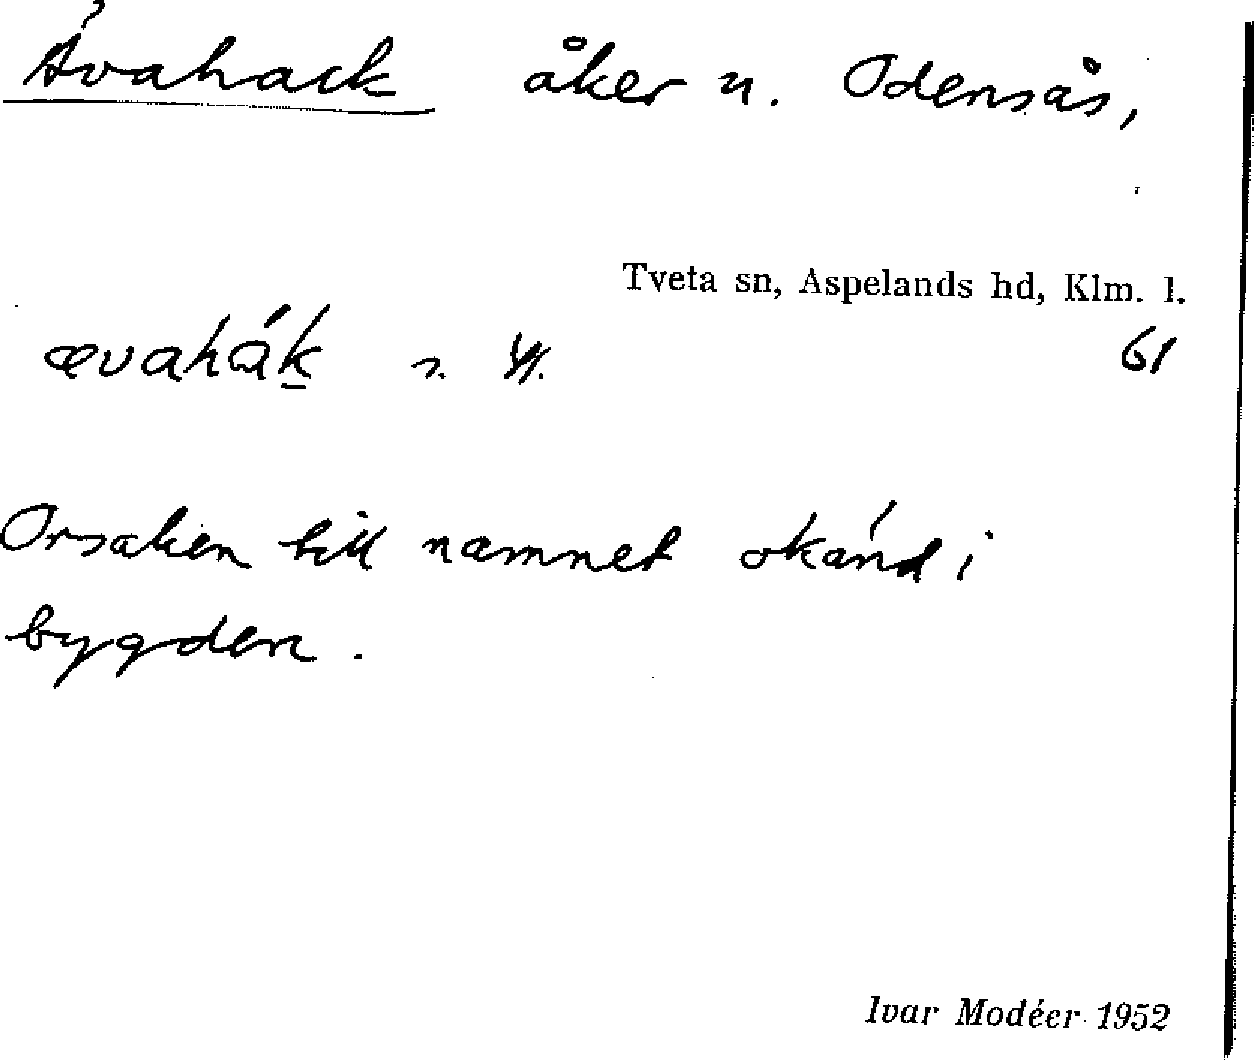 Ävahack åker n. Odensås,
Tveta sn, Aspelands hd, Klm. l.
ævahák 61
Orsaken till namnet okänd i
bygden.
Ivar Modéer 1952